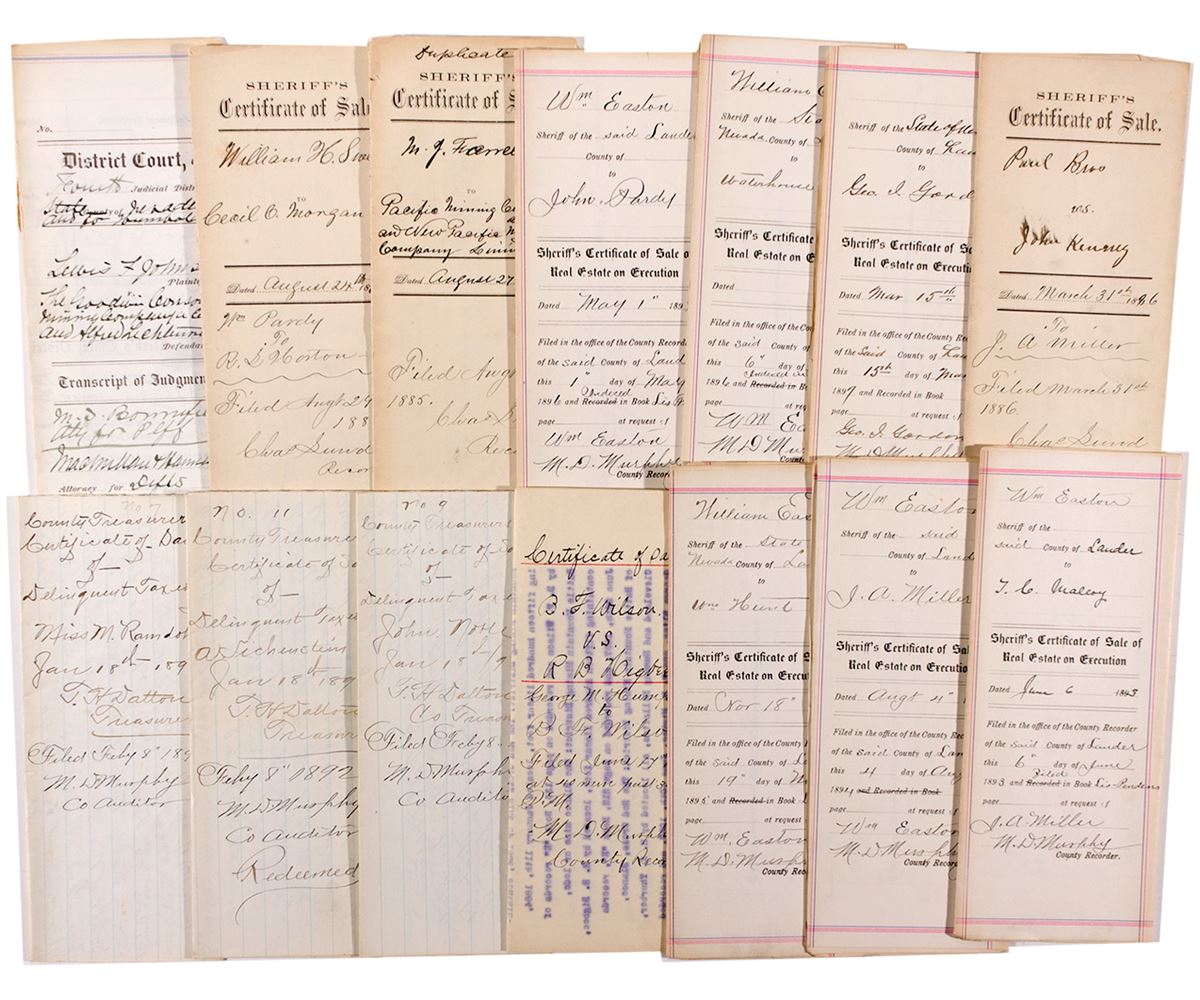 No.
District Court,
Fourth Judicial Distr
Lewis F Johns
Plainti
The Goodwin Conso
Mining Company a Co
and Alfred
Defenda
Transcript of Judgmen
M. S. Bonnifie
Atty for Plff
Macmillan &
Attorney for Defts
SHERIFF'S
Certificate of Sal
William H. Swe
TO
Cecil C. Morgan
Dated August 24th 18
Wm Pardy
To
R. L. Horton
Filed Augt 29
188
Chas Lund
Recor
Duplicate
SHERIFF'S
Certificate of S
M. J. Farrel
TO
Pacific Mining Co
and New Pacific M
Company
Dated August 27
Filed Augt
1885.
Chas L
Rec
Wm Easton
Sheriff of the said Lande
County of
to
John Pardy
Sheriff's Certificate of Sale o
Real Estate on Execution
Dated May 1" 189
Filed in the office of the County Record
of the said County of Land
this 1 day of May
Indexed
1896 and Recorded in Book Lis P
page at request of
Wm Easton
M. D. Murphy
County Reco
William E
Sheriff of the Sta
Nevada County of
to
Waterhouse
Sheriff's Certificate
Real Estate on
Dated
Filed in the office of the Cou
of the said County of
this 6" day of
Indexed in
1896 and Recorded in B
page at req
Wm Ea
M D Mu
Count
Sheriff of the State of Ne
County of Lan
to
Geo. I. Gord
Sheriff's Certificate of Sa
Real Estate on Executio
Dated Mar 15th
Filed in the office of the County Rec
of the Said County of Lan
this 15th day of Mar
1897 and Recorded in Book
page at request of
Geo. I. Gordon
M. D. Murph
SHERIFF'S
Certificate of Sale.
Paul Bros
vs.
John Kenney
Dated March 31st 1886
To
J. A Miller
Filed March 31st
1886.
Chas Lund
No 7
County Treasurer
Certificate of Sa
of
Delinquent Taxes
Miss M. Randol
Jan 18th 189
T. H Dalton
Treasure
Filed Feby 8" 189
M. D Murphy
Co Auditor
No. 11
County Treasure
Certificate of Sa
of
Delinquent Taxe
A Lichenstein
Jan 18th 189
T. H Dalton
Treasur
Feby 8" 1892
M. D Murphy
Co Auditor
Redeemed
No 9
County Treasurers
Certificate of Sa
of
Delinquent Taxe
John Nott
Jan 18th
T. H Dalton
Co Treasu
Filed Feby 8
M. D Murph
Co Audito
Certificate of Sa
B. F. Wilson.
V.S.
R B Higbe
George M. Hum
to
B. F. Wilso
Filed June 27"
at 40 min past 3
P.M.
M D Murph
County Reco
William Eas
Sheriff of the State
Nevada County of La
to
Wm Hunt
Sheriff's Certificate of S
Real Estate on Exec
Dated Nov 18"
Filed in the office of the County
of the Said County of La
this 19" day of N
1895 and Recorded in Book
page at request
Wm. Easton
M. D. Murp
County Rec
Wm Easto
Sheriff of the said
County of Land
to
J. A. Miller
Sheriff's Certificate of Sal
Real Estate on Executio
Dated Augt 4"
Filed in the office of the County Rec
of the Said County of Lan
this 4 day of Aug
1894 and Recorded in Book
page at request of
Wm Easto
M. D Murph
County Reco
Wm Easton
Sheriff of the
said County of Lander
to
T. C. Malloy
Sheriff's Certificate of Sale of
Real Estate on Execution
Dated June 6 1893
Filed in the office of the County Recorder
of the Said County of Lander
this 6" day of June
Filed
1893 and Recorded in Book Lis Pendens
page at request of
J. A. Miller
M. D. Murphy
County Recorder.